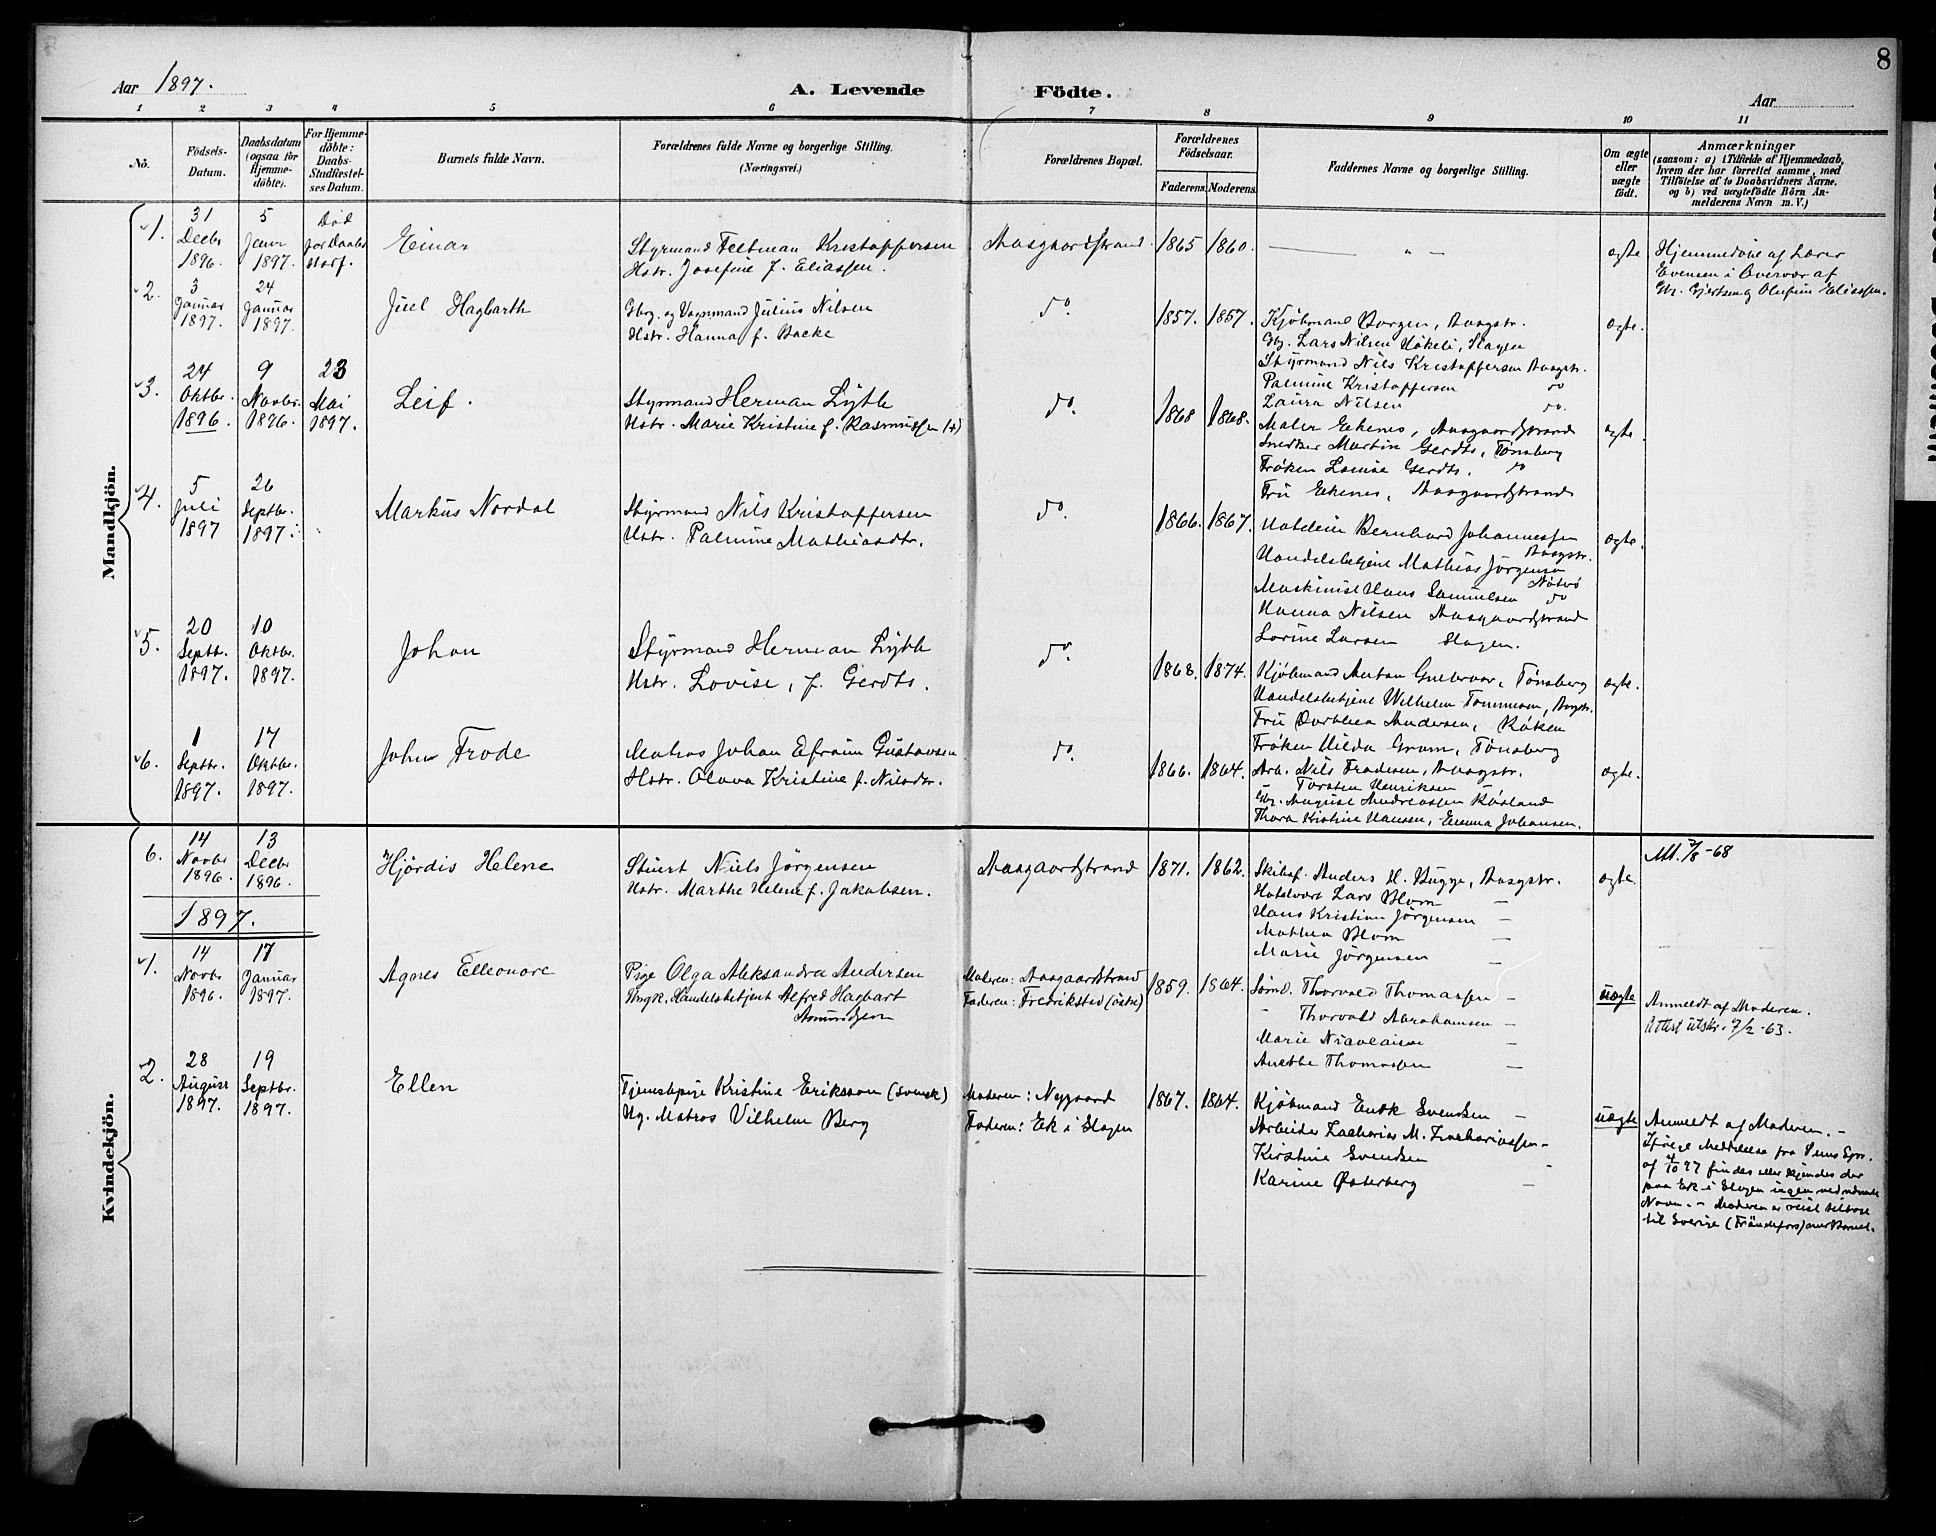 8
Aar 1897.
A. Levende Födte.
Aar
1 2 3 4 5 6 7 8 9 10 11
Nô.
Födsels-Datum.
Daabsdatum (ogsaa for Hjemme-döbte).
For Hjemme-döbte: Daabs-Stadfæstel-ses Datum.
Barnets fulde Navn.
Forældrenes fulde Navne og borgerlige Stilling. (Næringsvei.)
Forældrenes Bopæl.
Forældrenes Födselsaar.
Faderens. Moderens.
Faddernes Navne og borgerlige Stilling.
Om ægte eller uægte født.
Anmærkninger
(saasom: a) i Tilfælde af Hjemmedaab, hvem der har forrettet samme, med Tilföielse af to Daabsvidners Navne. og b) ved uægtefödte Börn An-melderens Navn m. V.)
Mandkjön.
1. 31 Decbr 1896. 5 Januar 1897. Död for Daabs Stadf.
Einar
Styrmand Feltman Kristoffersen
Hstr. Josefine f. Eliassen.
Aasgaardstrand. 1865 1860. — " — ægte
Hjemmedöbt af Lærer
Evensen i Overvær af
Gb. Gjertsen og Olufine Eliassen.
2. 3 Januar 1897. 24 Januar 1897.
Juel Hagbarth
Gbrg. og Vognmand Julius Nilsen
Hstr. Hanna f. Backe
do. 1857. 1857.
Kjöbmand Borgen, Aasgstr.
Gb. Lars Nilsen Håkeli, Slagen
Styrmand Nils Kristoffersen Aasgstr.
Palmine Kristoffersen do
Laura Nilsen do.
ægte.
3. 24 Oktbr. 1896. 9 Novbr. 1896. 23 Mai 1897.
Leif.
Styrmand Herman Lyth
Hstr. Marie Kristine f. Rasmussen (+)
do. 1868 1868.
Maler Ekenes, Aasgaardstrand
Snedker Martin Gerdts, Tönsberg
Fröken Louise Gerdts. do
Fru Ekenes, Aasgaardstrand
ægte.
4. 5 Juli 1897 26 Septbr. 1897.
Markus Nordal
Styrmand Nils Kristoffersen
Hstr. Palmine Mathiasdtr.
do. 1866. 1867.
Hoteleier Bernhard Johannessen Aasgstr.
Handelsbetjent Mathias Jörgensen Nöterö
Maskinist Hans Samuelsen do
Hanna Nilsen Aasgaardstrand
Lovine Larsen Slagen.
ægte.
5. 20 Septbr. 1897. 10 Oktbr. 1897.
Johan
Styrmand Herman Lyth
Hstr. Lovise, f. Gerdts.
do. 1868. 1874.
Kjöbmand Anton Gullervar, Tönsberg
Handelsbetjent Wilhelm Tommesen, Aasgstr.
Fru Dorthea Andersen, Röken
Fröken Hilda Gram, Tönsberg
ægte.
6. 1 Septbr. 1897. 17 Oktbr. 1897.
John Frode
Matros Johan Efraim Gustavsen
Hstr. Olava Kristine f. Nilsdtr.
do. 1866. 1864.
Arb. Nils Frodesen, Aasgstr.
Torsten Henriksen
Gb. August Andreassen Råsland
Thora Kristine Hansen, Emma Johansen.
ægte.
Kvindekjön.
6. 14 Novbr 1896. 13 Decbr 1896.
Hjördis Helene
Stuert Niels Jörgensen
Hstr. Marthe Helene f. Jakobsen.
Aasgaardstrand 1871. 1862.
Skibsf. Anders H. Bugge, Aasgstr.
Hotelvert Lars Blom —
Hans Kristian Jörgensen —
Mathea Blom —
Marie Jörgensen —
ægte.
Att. 7/8-68
1897.
1. 14 Novbr 1896. 17 Januar 1897.
Agnes Elleonore
Pige Olga Aleksandra Andersen
Ungk. Handelsbetjent Alfred Hagbart
Amundsen
Moderen: Aasgaardstrand
Faderen: Fredrikstad (östre)
1859. 1864.
Sömd. Thorvald Thomassen —
" Thorvald Abrahamsen —
Marie Nicolaisen —
Anethe Thomassen —
uægte
Anmeldt af Moderen.
Attest utskr. 7/2-63.
2. 28 August 1897. 19 Septbr. 1897.
Ellen
Tjenestepige Kristine Eriksson (svensk)
Ug. Matros Vilhelm Berg
Moderen: Nygaard
Faderen: Ek i Slagen
1867. 1864.
Kjöbmand Entk Svendsen —
Arbeider Zacharias M. Zachariassen —
Kirstine Svendsen
Karine Østerberg —
uægte
Anmeldt af Moderen. —
Ifölge Meddelelse fra Sems Spr.
af 4/10 97 findes eller kjendes der
paa Ek i Slagen ingen ved nævnte
Navn. — Moderen er reist tilbage
til Sverige (Frändefors) med Barnet.